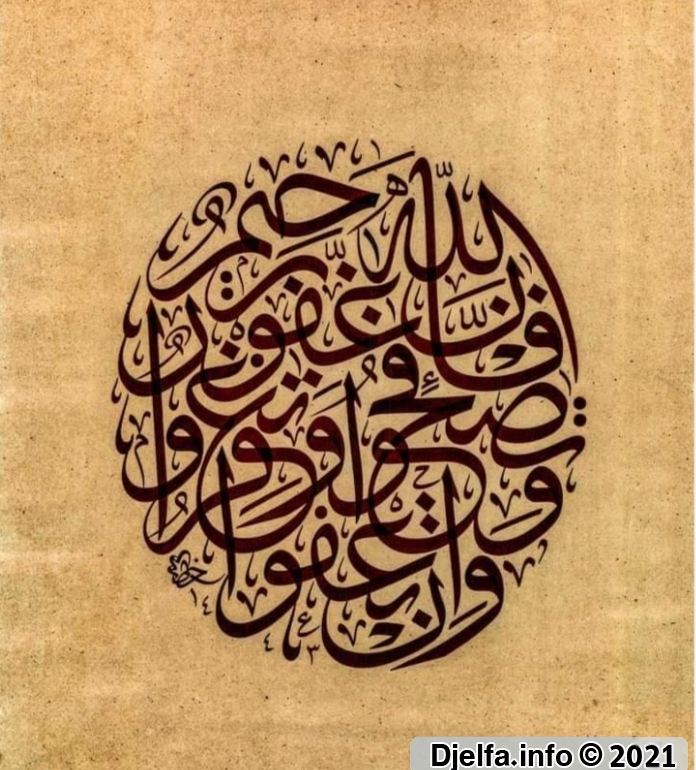 وإن تعفوا وتصفحوا وتغفروا فإن الله غفور رحيم
Djelfa.info © 2021